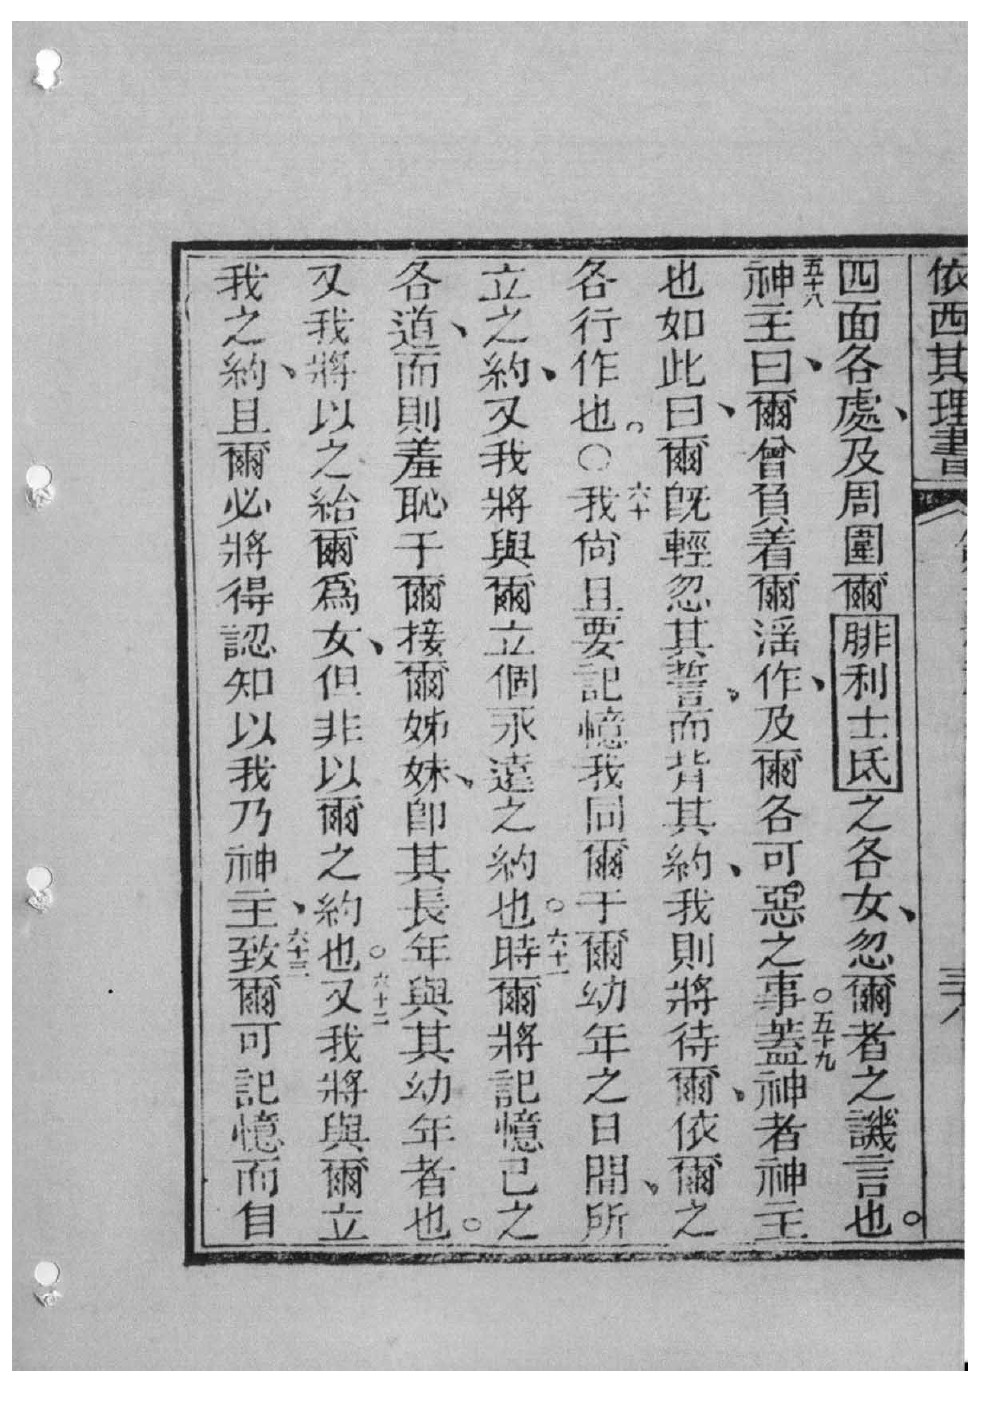 依西其理書
四面各處、及周圍爾腓利士氐之各女、忽爾者之譏言也。
五十八神主曰、爾曾負着爾滛作、及爾各可惡之事。五十九蓋神者神主
也如此曰、爾旣輕忽其誓、而背其約、我則將待爾、依爾之
各行作也。○六十我尙且要記憶我同爾于爾幼年之日間、所
立之約、又我將與爾立個永遠之約也。六十一時爾將記憶己之
各道、而則羞恥于爾接爾姊妹、卽其長年與其幼年者也。
又我將以之給爾爲女、但非以爾之約也。六十二又我將與爾立
我之約、且爾必將得認知以我乃神主、六十三致爾可記憶而自